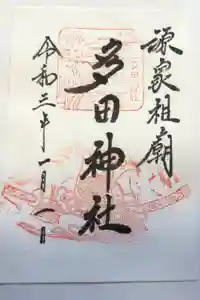 源家祖廟
多田神社
令和三年一月一日